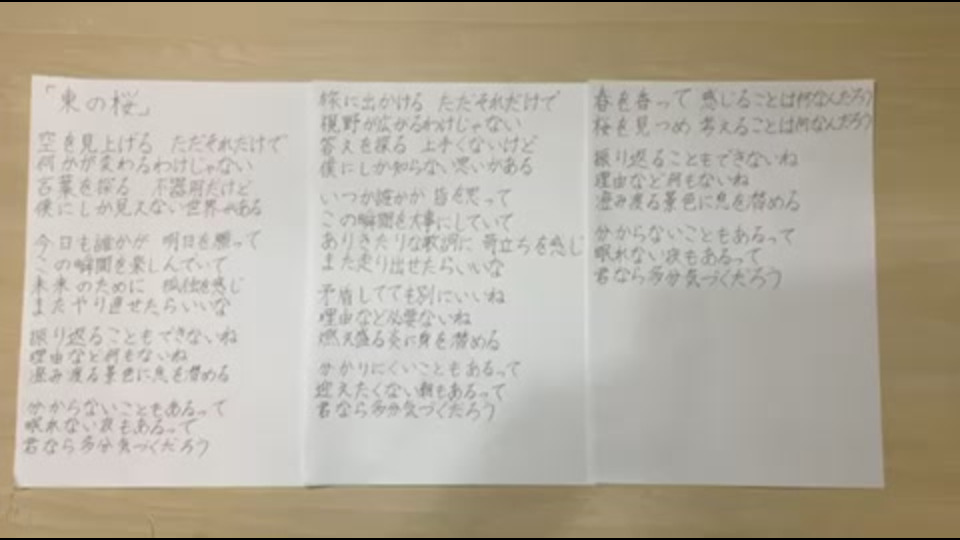 「東の桜」
空を見上げる ただそれだけで
何かが変わるわけじゃない
言葉を探る 不器用だけど
僕にしか見えない世界がある
今日も誰かが 明日を願って
この瞬間を楽しんでいて
未来のために 孤独を感じ
またやり直せたらいいな
振り返ることもできないね
理由など何もないね
澄み渡る景色に息を潜める
分からないこともあるって
眠れない夜もあるって
君なら多分気づくだろう
旅に出かける ただそれだけで
視野が広がるわけじゃない
答えを探る 上手くないけど
僕にしか知らない思いがある
いつか誰かが 皆を思って
この瞬間を大事にしていて
ありきたりな歌詞に 苛立ちを感じ
また走り出せたらいいな
矛盾してても別にいいね
理由など必要ないね
燃え盛る炎に身を潜める
分かりにくいこともあるって
迎えたくない朝もあるって
君なら多分気づくだろう
春を香って 感じることは何なんだろう
桜を見つめ 考えることは何なんだろう
振り返ることもできないね
理由など何もないね
澄み渡る景色に息を潜める
分からないこともあるって
眠れない夜もあるって
君なら多分気づくだろう